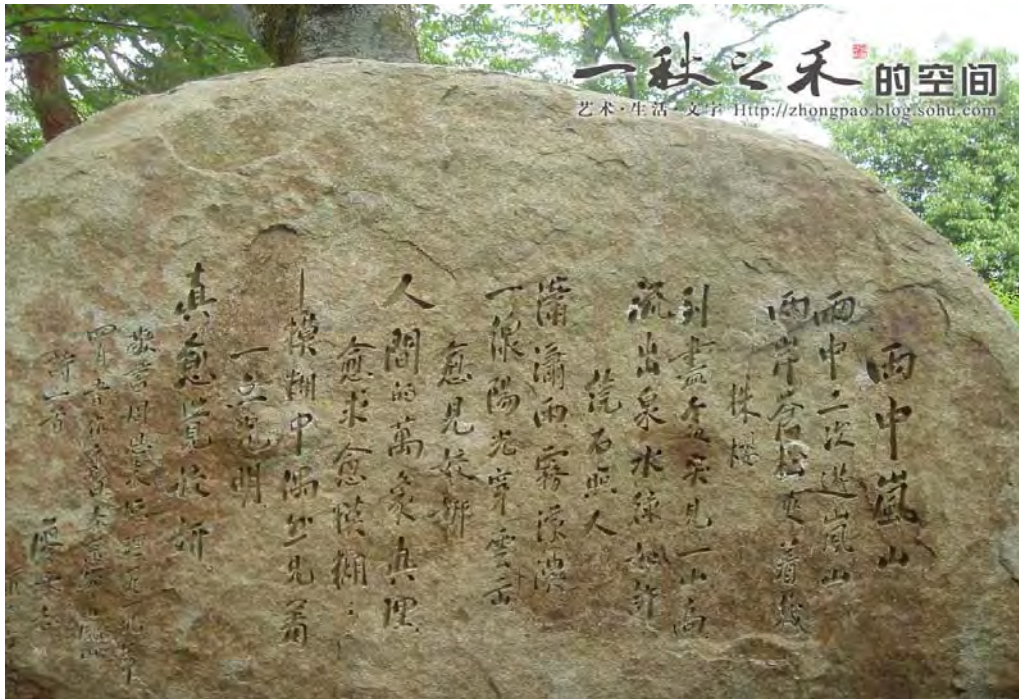 一秋之禾的空间
艺术·生活·文字 Http://zhongpao.blog.sohu.com
雨中嵐山
雨中二次遊嵐山
兩岸蒼松夾着幾
株櫻
到盡處突見一山高
流出泉水綠如許
繞石照人
瀟瀟雨霧濛濃
一線陽光穿雲出
愈見姣妍
人間的萬象真理
愈求愈模糊
模糊中偶然見着
一點光明
真愈覺姣妍
敬書周總理一九一九年
四月五日
詩一首
廖承志